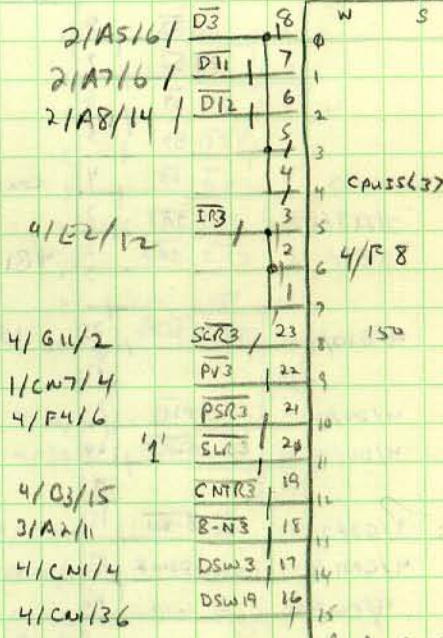 W S
2/A5/6/ D3 8 0
2/A7/6/ D11 7 1
2/A8/14/ D12 6 2
5 3
4 4 CPUIS(3)
4/E2/12 IR3 3 5
2 6 4/F8
1 7
4/G11/2 SCR3 23 8 150
1/CN7/4 PV3 22 9
4/F4/6 PSR3 21 10
'1' SLR 20 11
4/B3/15 CNTR3 19 12
3/A2/11 B-N3 18 13
4/CN1/4 DSW3 17 14
4/CN1/36 DSW19 16 15